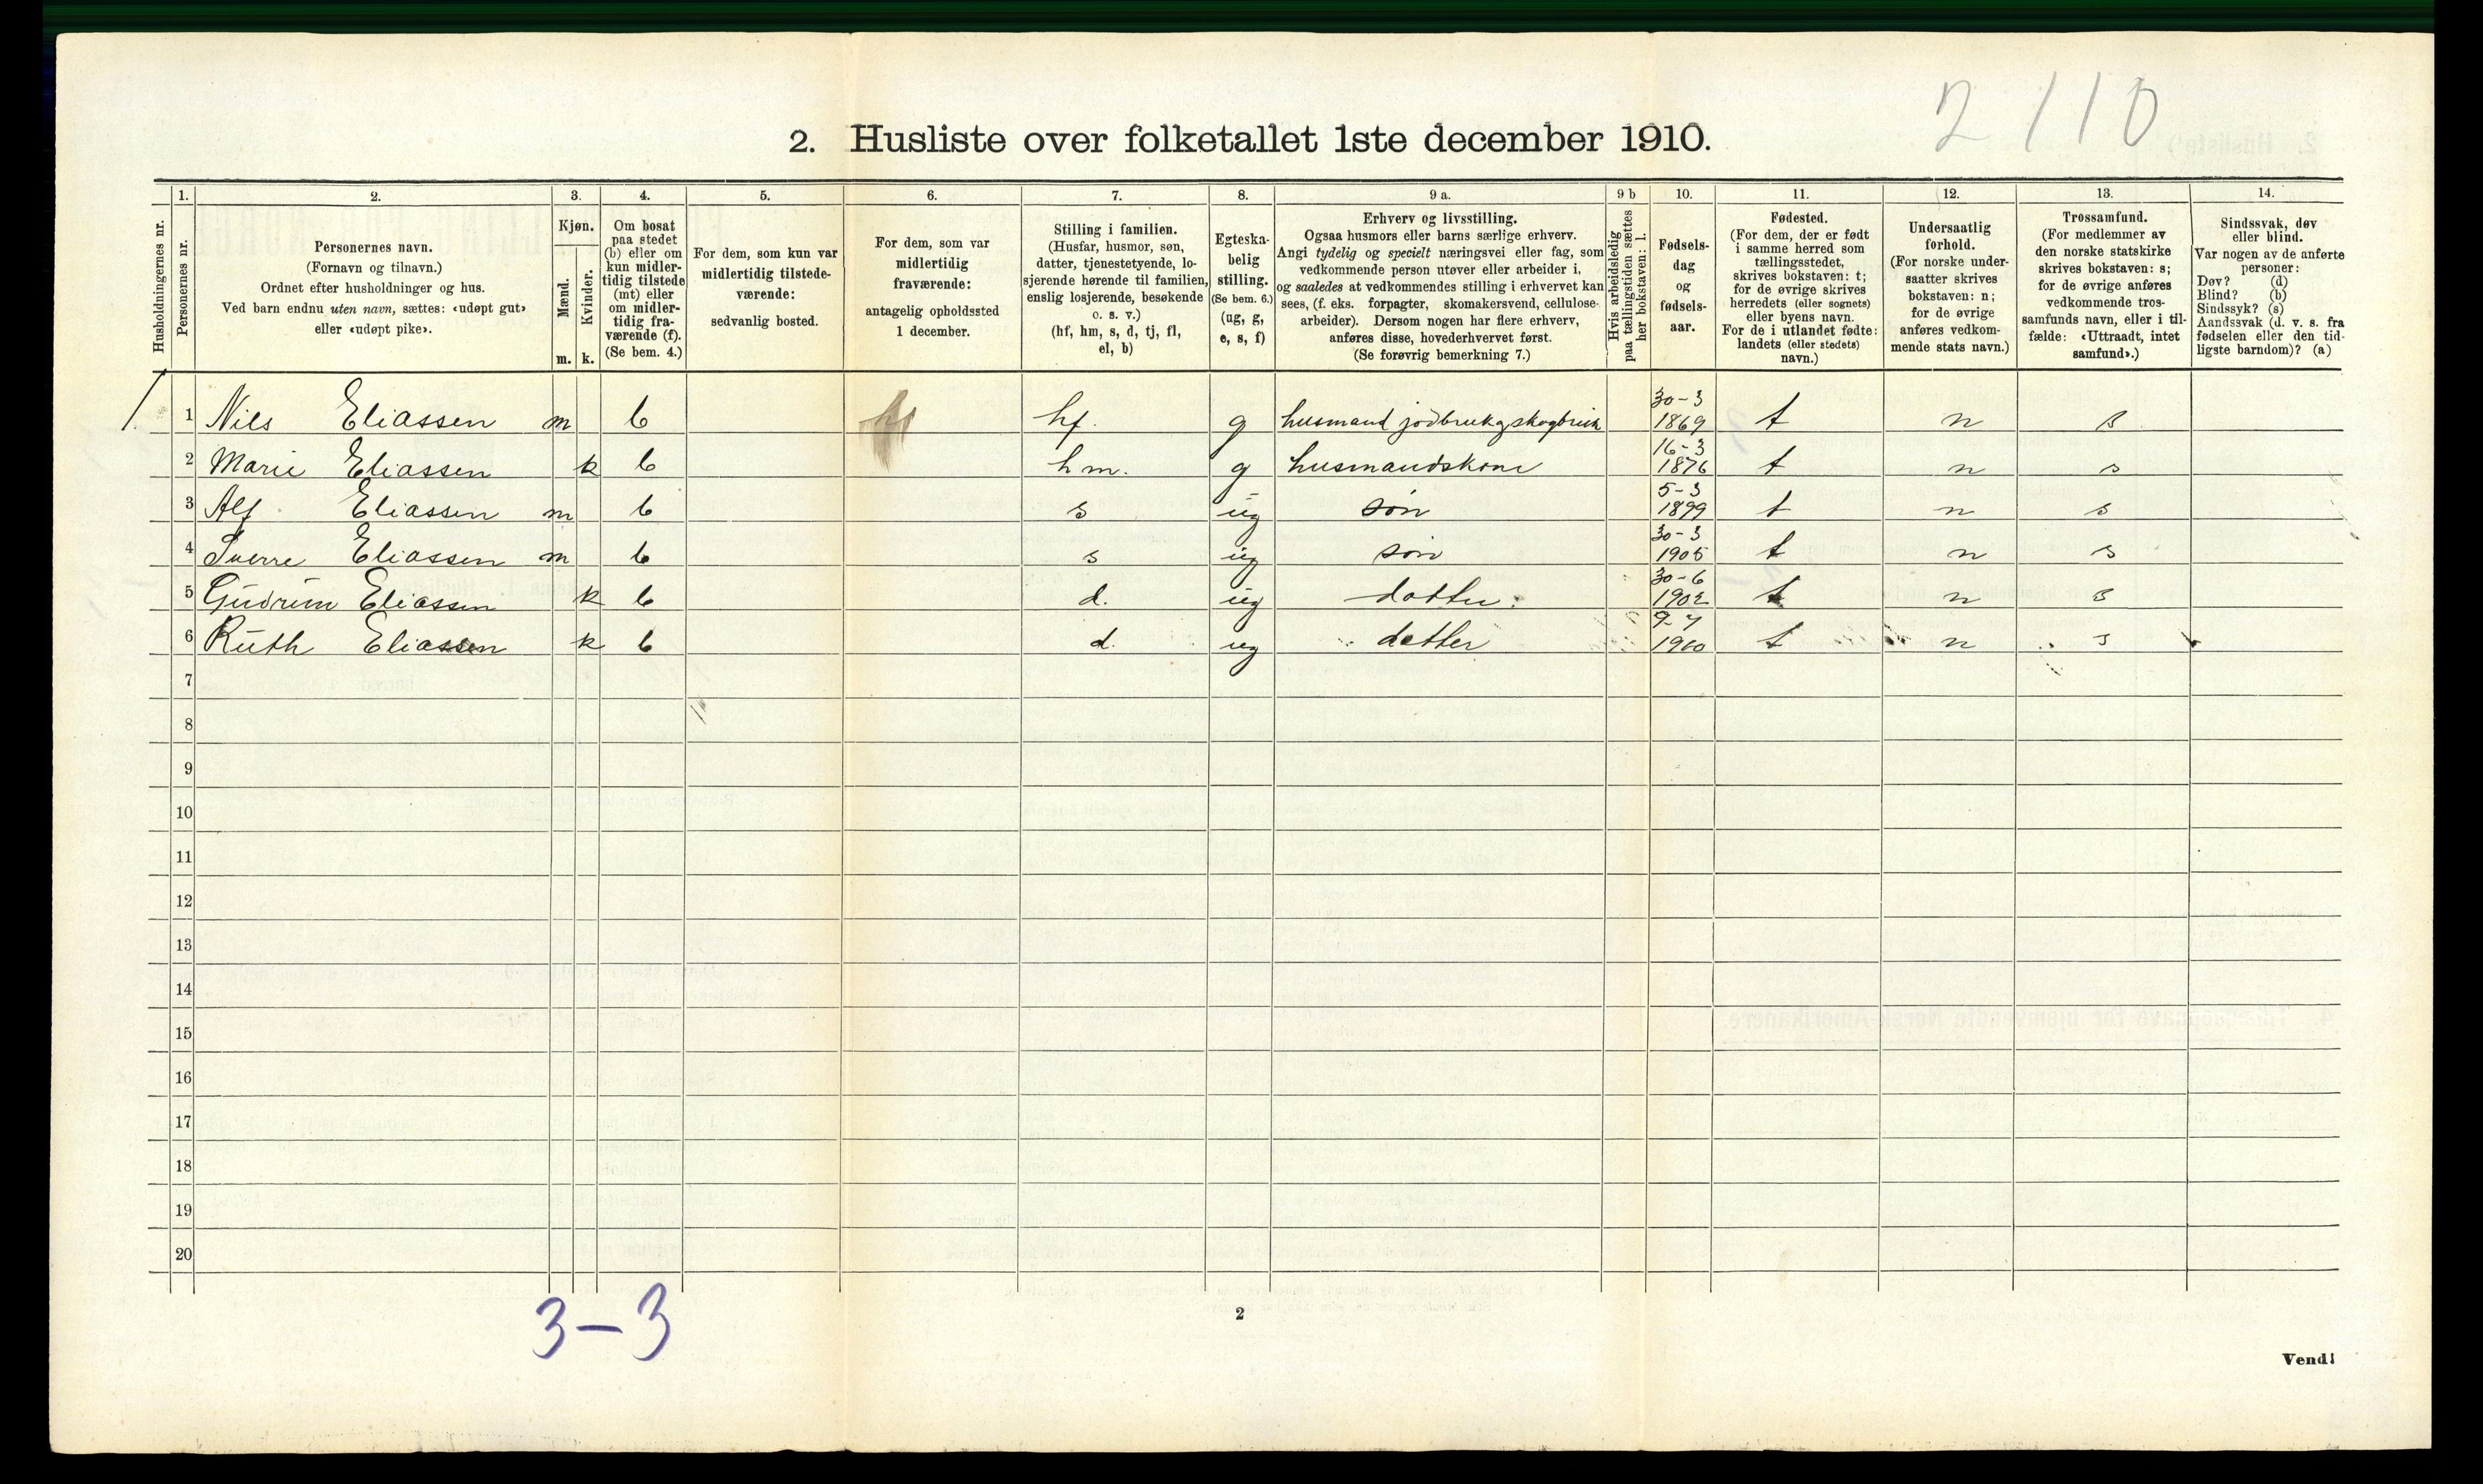 2110
2. Husliste over folketallet 1ste december 1910.
Husholdningernes nr.
1.
Personernes nr.
2.
Personernes navn.
(Fornavn og tilnavn.)
Ordnet efter husholdninger og hus.
Ved barn endnu uten navn, sættes: «udøpt gut»
eller «udøpt pike».
3.
Kjøn.
Mænd.
Kvinder.
m. k.
4.
Om bosat
paa stedet
(b) eller om
kun midler-
tidig tilstede
(mt) eller
om midler-
tidig fra-
værende (f).
(Se bem. 4.)
5.
For dem, som kun var
midlertidig tilstede-
værende:
sedvanlig bosted.
6.
For dem, som var
midlertidig
fraværende:
antagelig opholdssted
1 december.
7.
Stilling i familien.
(Husfar, husmor, søn,
datter, tjenestetyende, lo-
sjerende hørende til familien,
enslig losjerende, besøkende
o. s. v.)
(hf, hm, s, d, tj, fl,
el, b)
8.
Egteska-
belig
stilling.
(Se bem. 6.)
(ug, g,
e, s, f)
9 a.
Erhverv og livsstilling.
Ogsaa husmors eller barns særlige erhverv.
Angi tydelig og specielt næringsvei eller fag, som
vedkommende person utøver eller arbeider i,
og saaledes at vedkommendes stilling i erhvervet kan
sees, (f. eks. forpagter, skomakersvend, cellulose-
arbeider). Dersom nogen har flere erhverv,
anføres disse, hovederhvervet først.
(Se forøvrig bemerkning 7.)
9 b
Hvis arbeidsledig
paa tællingstiden sættes
her bokstaven: l.
10.
Fødsels-
dag
og
fødsels-
aar.
11.
Fødested.
(For dem, der er født
i samme herred som
tællingsstedet,
skrives bokstaven: t;
for de øvrige skrives
herredets (eller sognets)
eller byens navn.
For de i utlandet fødte:
landets (eller stedets)
navn.)
12.
Undersaatlig
forhold.
(For norske under-
saatter skrives
bokstaven: n;
for de øvrige
anføres vedkom-
mende stats navn.)
13.
Trossamfund.
(For medlemmer av
den norske statskirke
skrives bokstaven: s;
for de øvrige anføres
vedkommende tros-
samfunds navn, eller i til-
fælde: «Uttraadt, intet
samfund».)
14.
Sindssvak, døv
eller blind.
Var nogen av de anførte
personer:
Døv? (d)
Blind? (b)
Sindssyk? (s)
Aandssvak (d. v. s. fra
fødselen eller den tid-
ligste barndom)? (a)
1 Nils Eliassen m b hf. g husmand jodbruk og skogbruk 30-3 1869 t n s
2 Marie Eliassen k b hm. g husmandskone 16-3 1876 t n s
3 Alf Eliassen m b s ug søn 5-3 1899 t n s
4 Sverre Eliassen m b s ug søn 30-3 1905 t n s
5 Gudrun Eliassen k b d. ug datter 30-6 1902 t n s
6 Ruth Eliassen k b d. ug datter 1910 t n s
7
8
9
10
11
12
13
14
15
16
17
18
19
20
3-3
2
Vend!